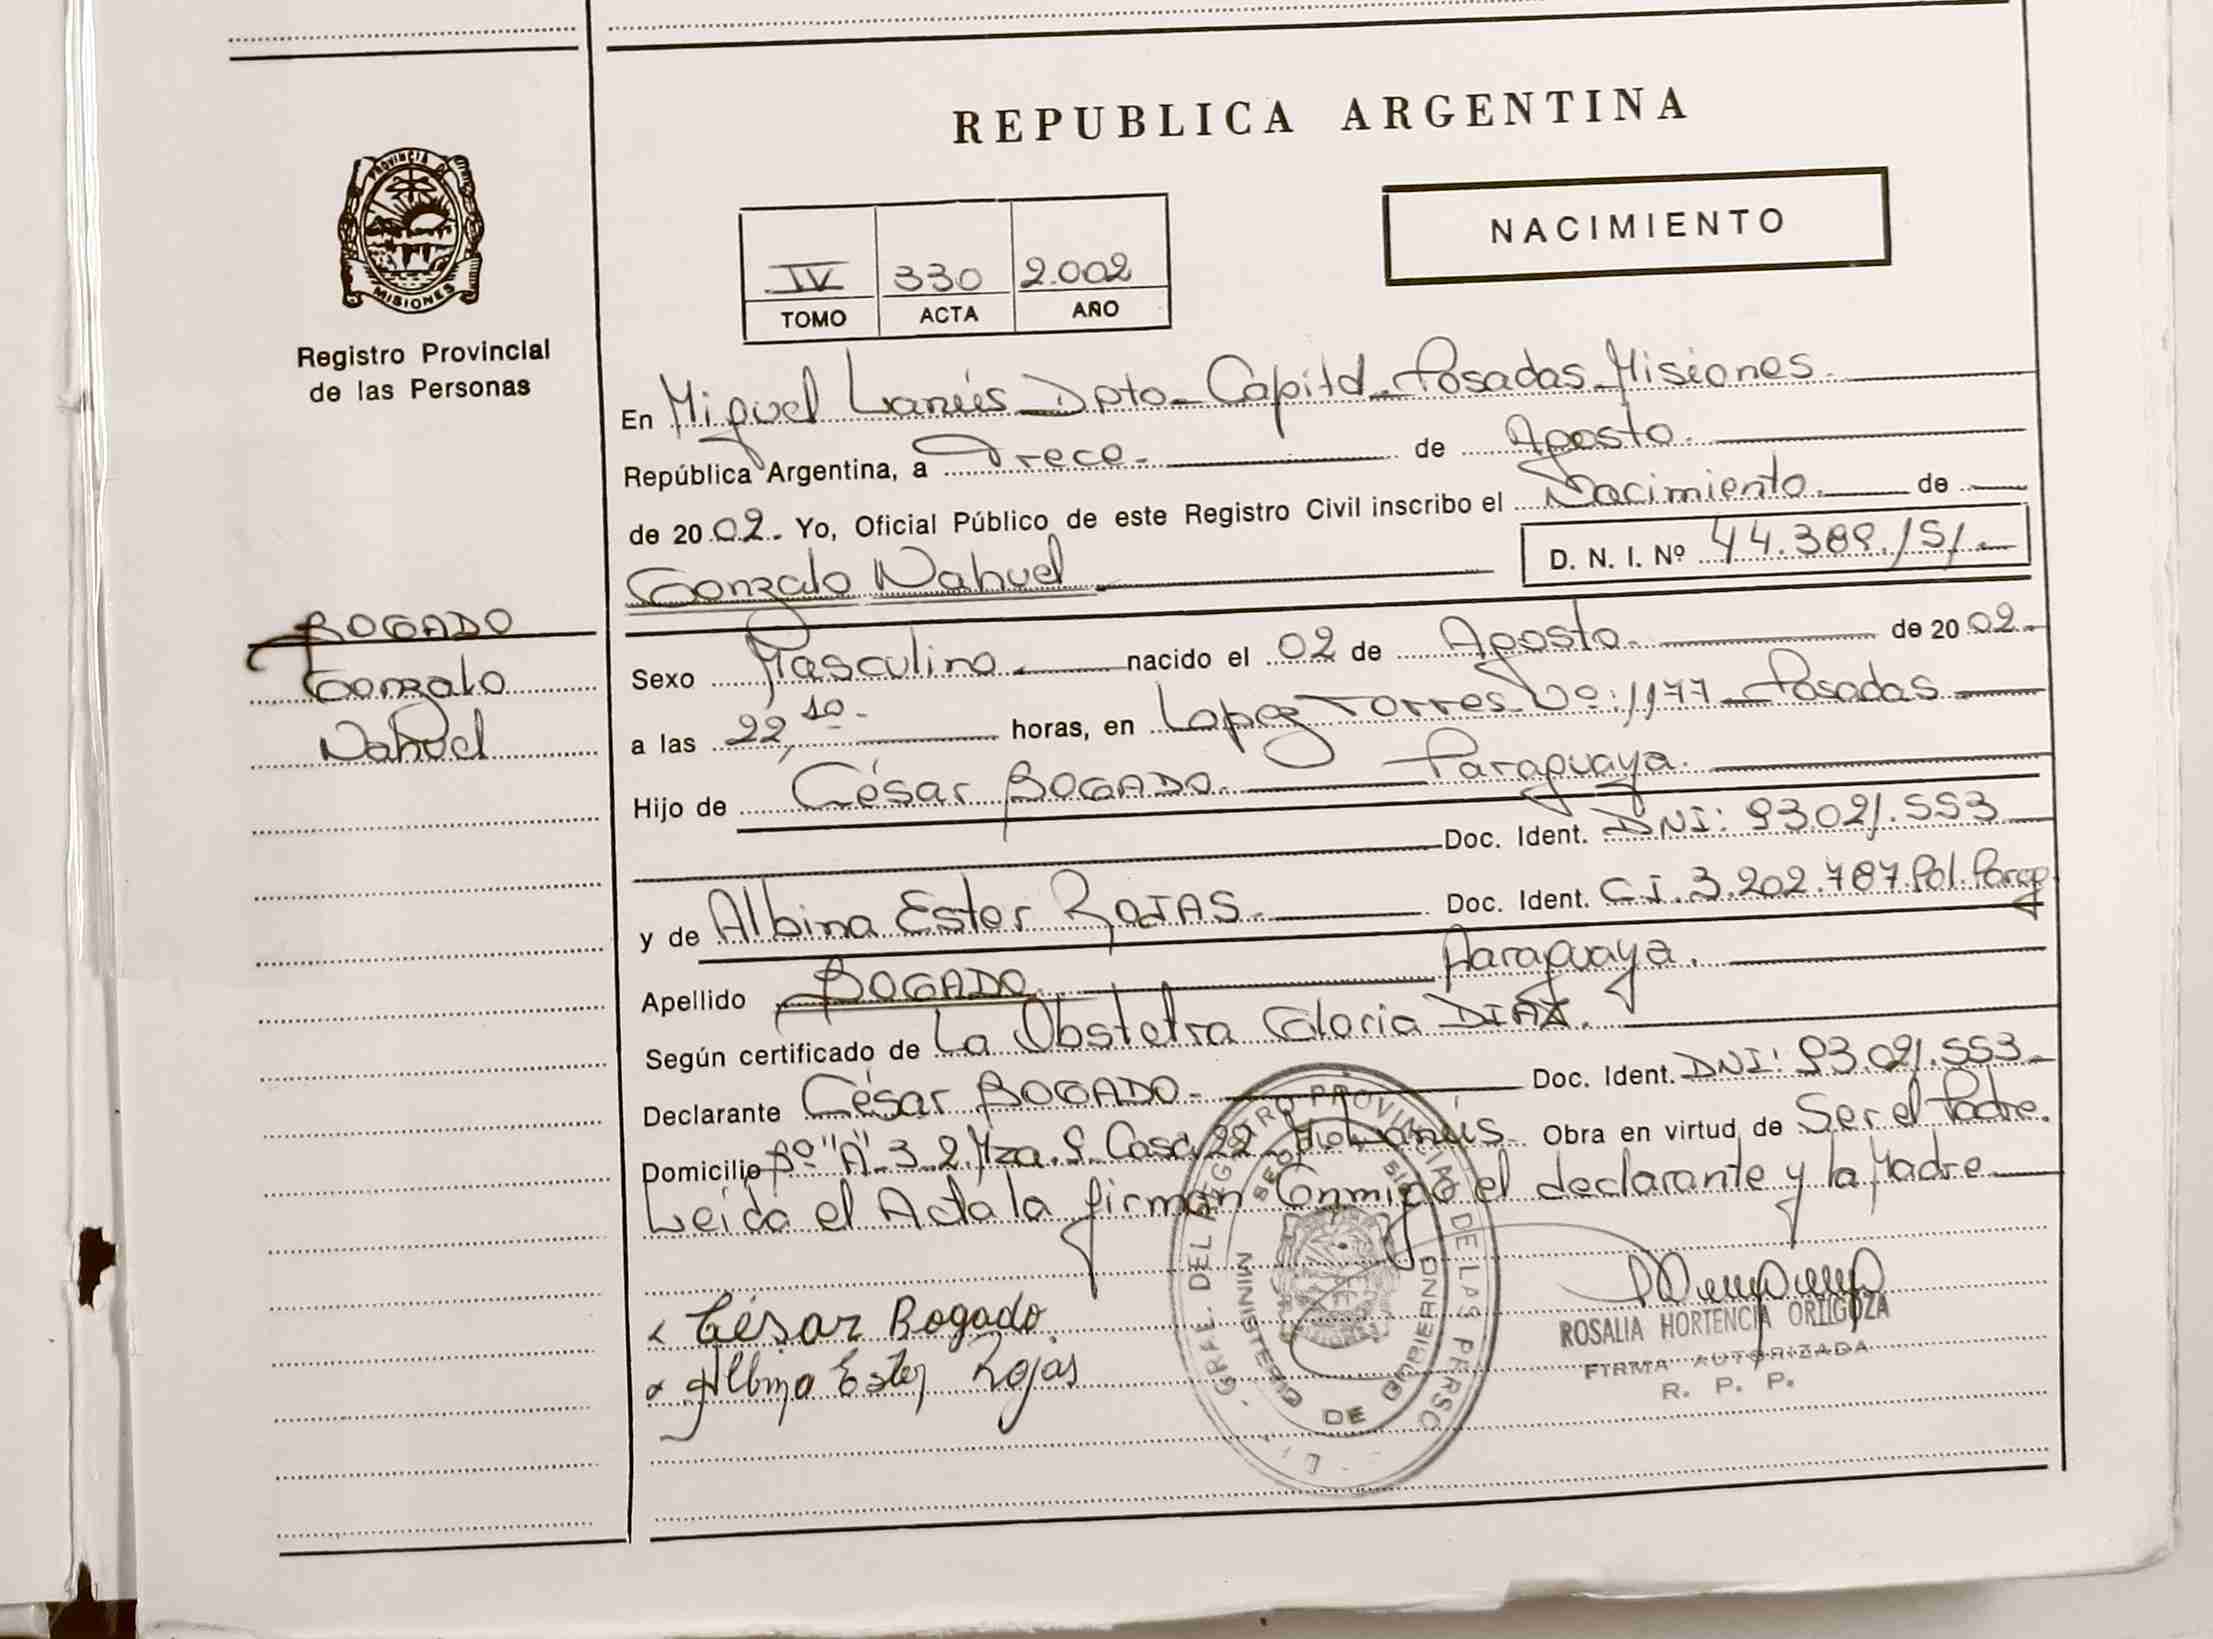 REPUBLICA ARGENTINA
NACIMIENTO
IV 330 2.002
TOMO ACTA AÑO
PROVINCIA DE
MISIONES
Registro Provincial
de las Personas
En Miguel Lanús Dpto- Capital- Posadas- Misiones.
República Argentina, a Trece. de Agosto.
de 2002. Yo, Oficial Público de este Registro Civil inscribo el Nacimiento. de
Gonzalo Nahuel D. N. I. Nº 44.389.151.-
BOGADO
Gonzalo
Nahuel
Sexo Masculino. nacido el 02 de Agosto. de 2002.
a las 22,10. horas, en Lopez Torres Nº: 1177 Posadas
Hijo de César BOGADO. Paraguaya.
Doc. Ident. DNI: 93.021.553
y de Albina Ester ROJAS. Doc. Ident. C.I. 3.202.787 Pol. Parag
Apellido BOGADO. Paraguaya.
Según certificado de La Obstetra Gloria DIAZ.
Declarante César BOGADO. Doc. Ident. DNI: 93.021.553.
Domicilio Bº "A" 3.2. Mza. 9. Casa 22 Lanús. Obra en virtud de Ser el Padre.
Leida el Acta la firman Conmigo el declarante y la Madre
César Bogado.
Albina Ester Rojas
GRAL. DEL REGISTRO PROVINCIAL DE LAS PERSO
MINISTERIO DE GOBIERNO
ROSALIA HORTENCIA ORTIGOZA
FIRMA AUTORIZADA
R. P. P.